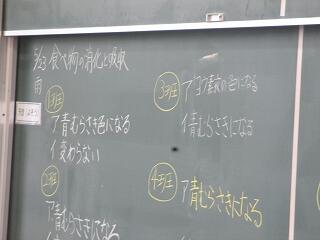 5/23 食べ物の消化と吸収
雨
1班
ア青むらさき色になる
イ変わらない
2班
ア青むらさきになる
3班
アヨウ素液の色になる
イ青むらさきになる
4班
ア青むらさきになる